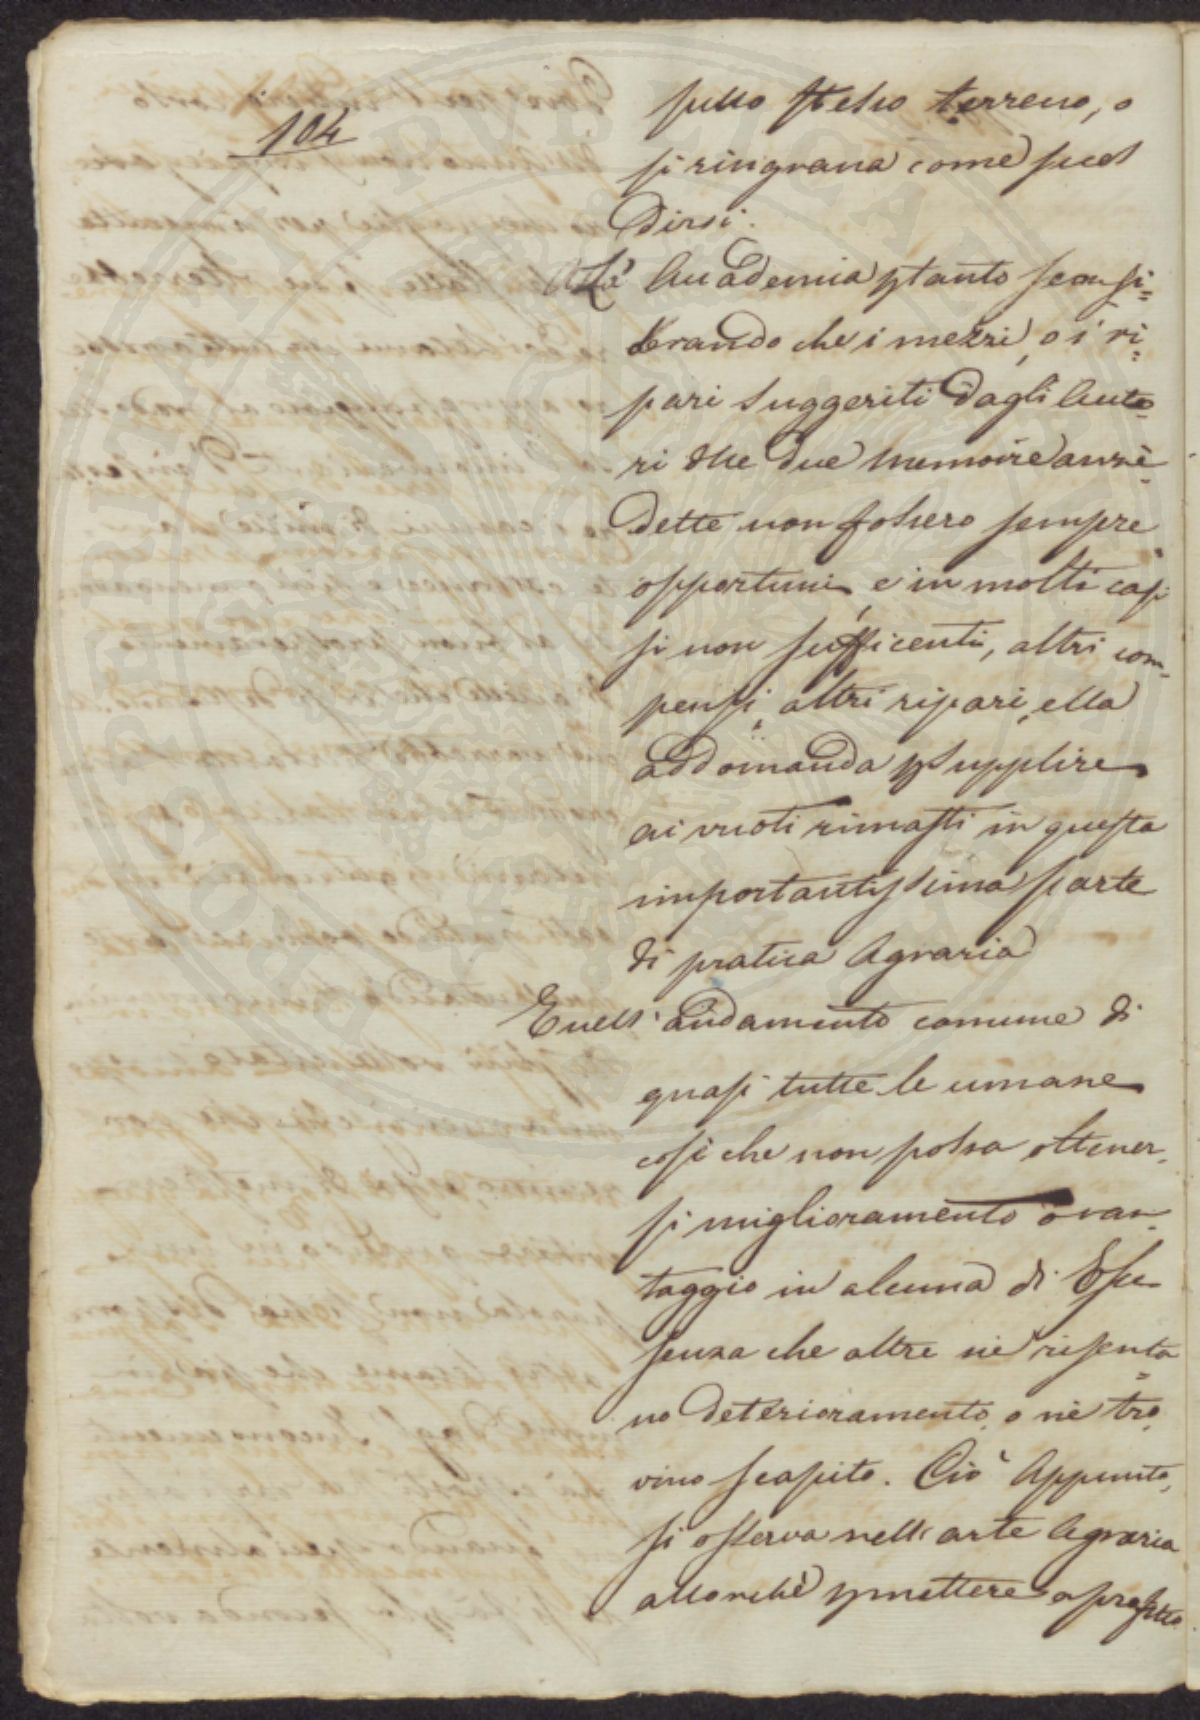 104
sullo stesso terreno, o
si ringrana come suol
dirsi.
L'Accademia ptanto consi=
derando che i mezzi, o i ri=
pari suggeriti dagli Auto=
ri dlle due memorie anzi=
dette non fossero sempre
opportuni, e in molti casi
si non sufficenti, altri com=
pensi, altri ripari, ella
addomanda p supplire
ai vuoti rimasti in questa
importantissima parte
di pratica Agraria
È nell'andamento comune di
quasi tutte le umane
cose che non possa ottener=
si miglioramento o van=
taggio in alcuna di Esse
senza che altre ne risenta=
no deterioramento, o ne tro=
vino scapito. Ciò Appunto
si osserva nell'arte Agraria
allorchè p mettere a profitto